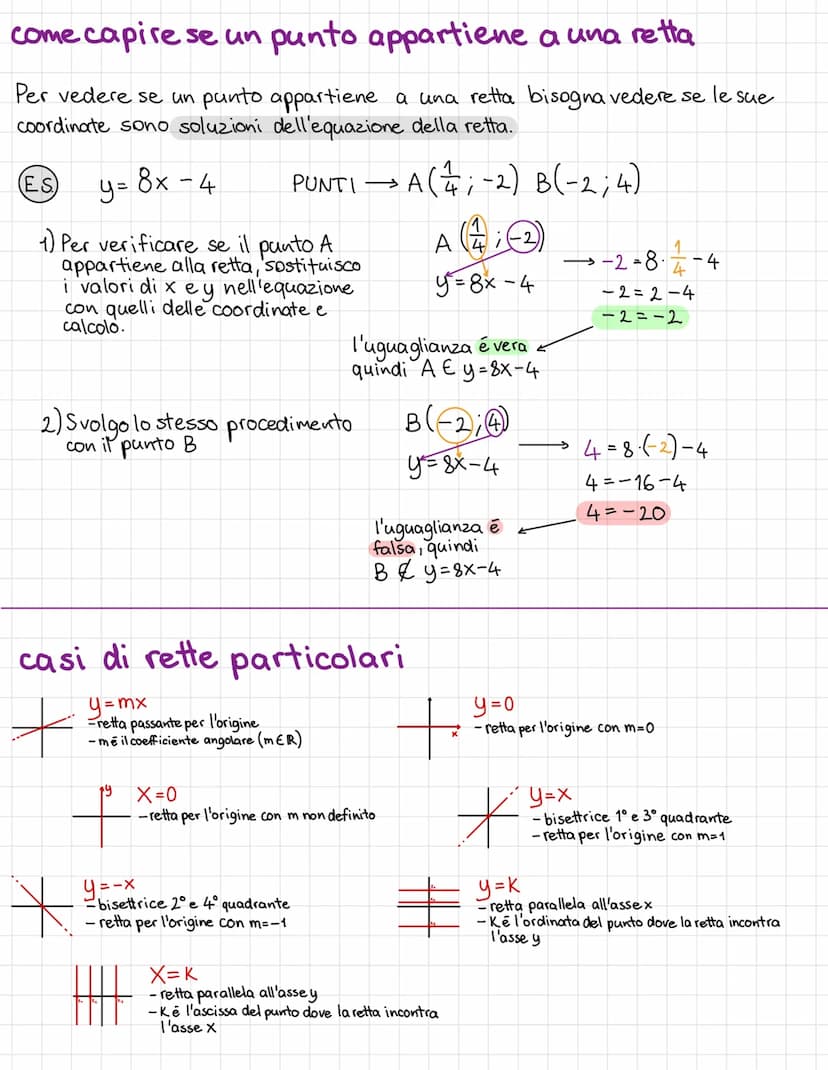 come capire se un punto appartiene a una retta
Per vedere se un punto appartiene a una retta bisogna vedere se le sue
coordinate sono soluzioni dell'equazione della retta.
ES y = 8x - 4 PUNTI → A(1/4 ; -2) B(-2 ; 4)
1) Per verificare se il punto A
appartiene alla retta, sostituisco
i valori di x e y nell'equazione
con quelli delle coordinate e
calcolo.
A (1/4 ; -2)
y = 8x - 4
→ -2 = 8 · 1/4 - 4
-2 = 2 - 4
-2 = -2
l'uguaglianza é vera
quindi A ∈ y = 8x - 4
2) Svolgo lo stesso procedimento
con il punto B
B(-2 ; 4)
y = 8x - 4
→ 4 = 8 · (-2) - 4
4 = -16 - 4
4 = -20
l'uguaglianza é
falsa, quindi
B ∉ y = 8x - 4
casi di rette particolari
y = mx
- retta passante per l'origine
- m é il coefficiente angolare (m ∈ R)
x
y = 0
- retta per l'origine con m=0
y
x = 0
- retta per l'origine con m non definito
y = x
- bisettrice 1° e 3° quadrante
- retta per l'origine con m=1
y = -x
- bisettrice 2° e 4° quadrante
- retta per l'origine con m=-1
y = K
- retta parallela all'asse x
- K é l'ordinata del punto dove la retta incontra
l'asse y
x = K
- retta parallela all'asse y
- K é l'ascissa del punto dove la retta incontra
l'asse x